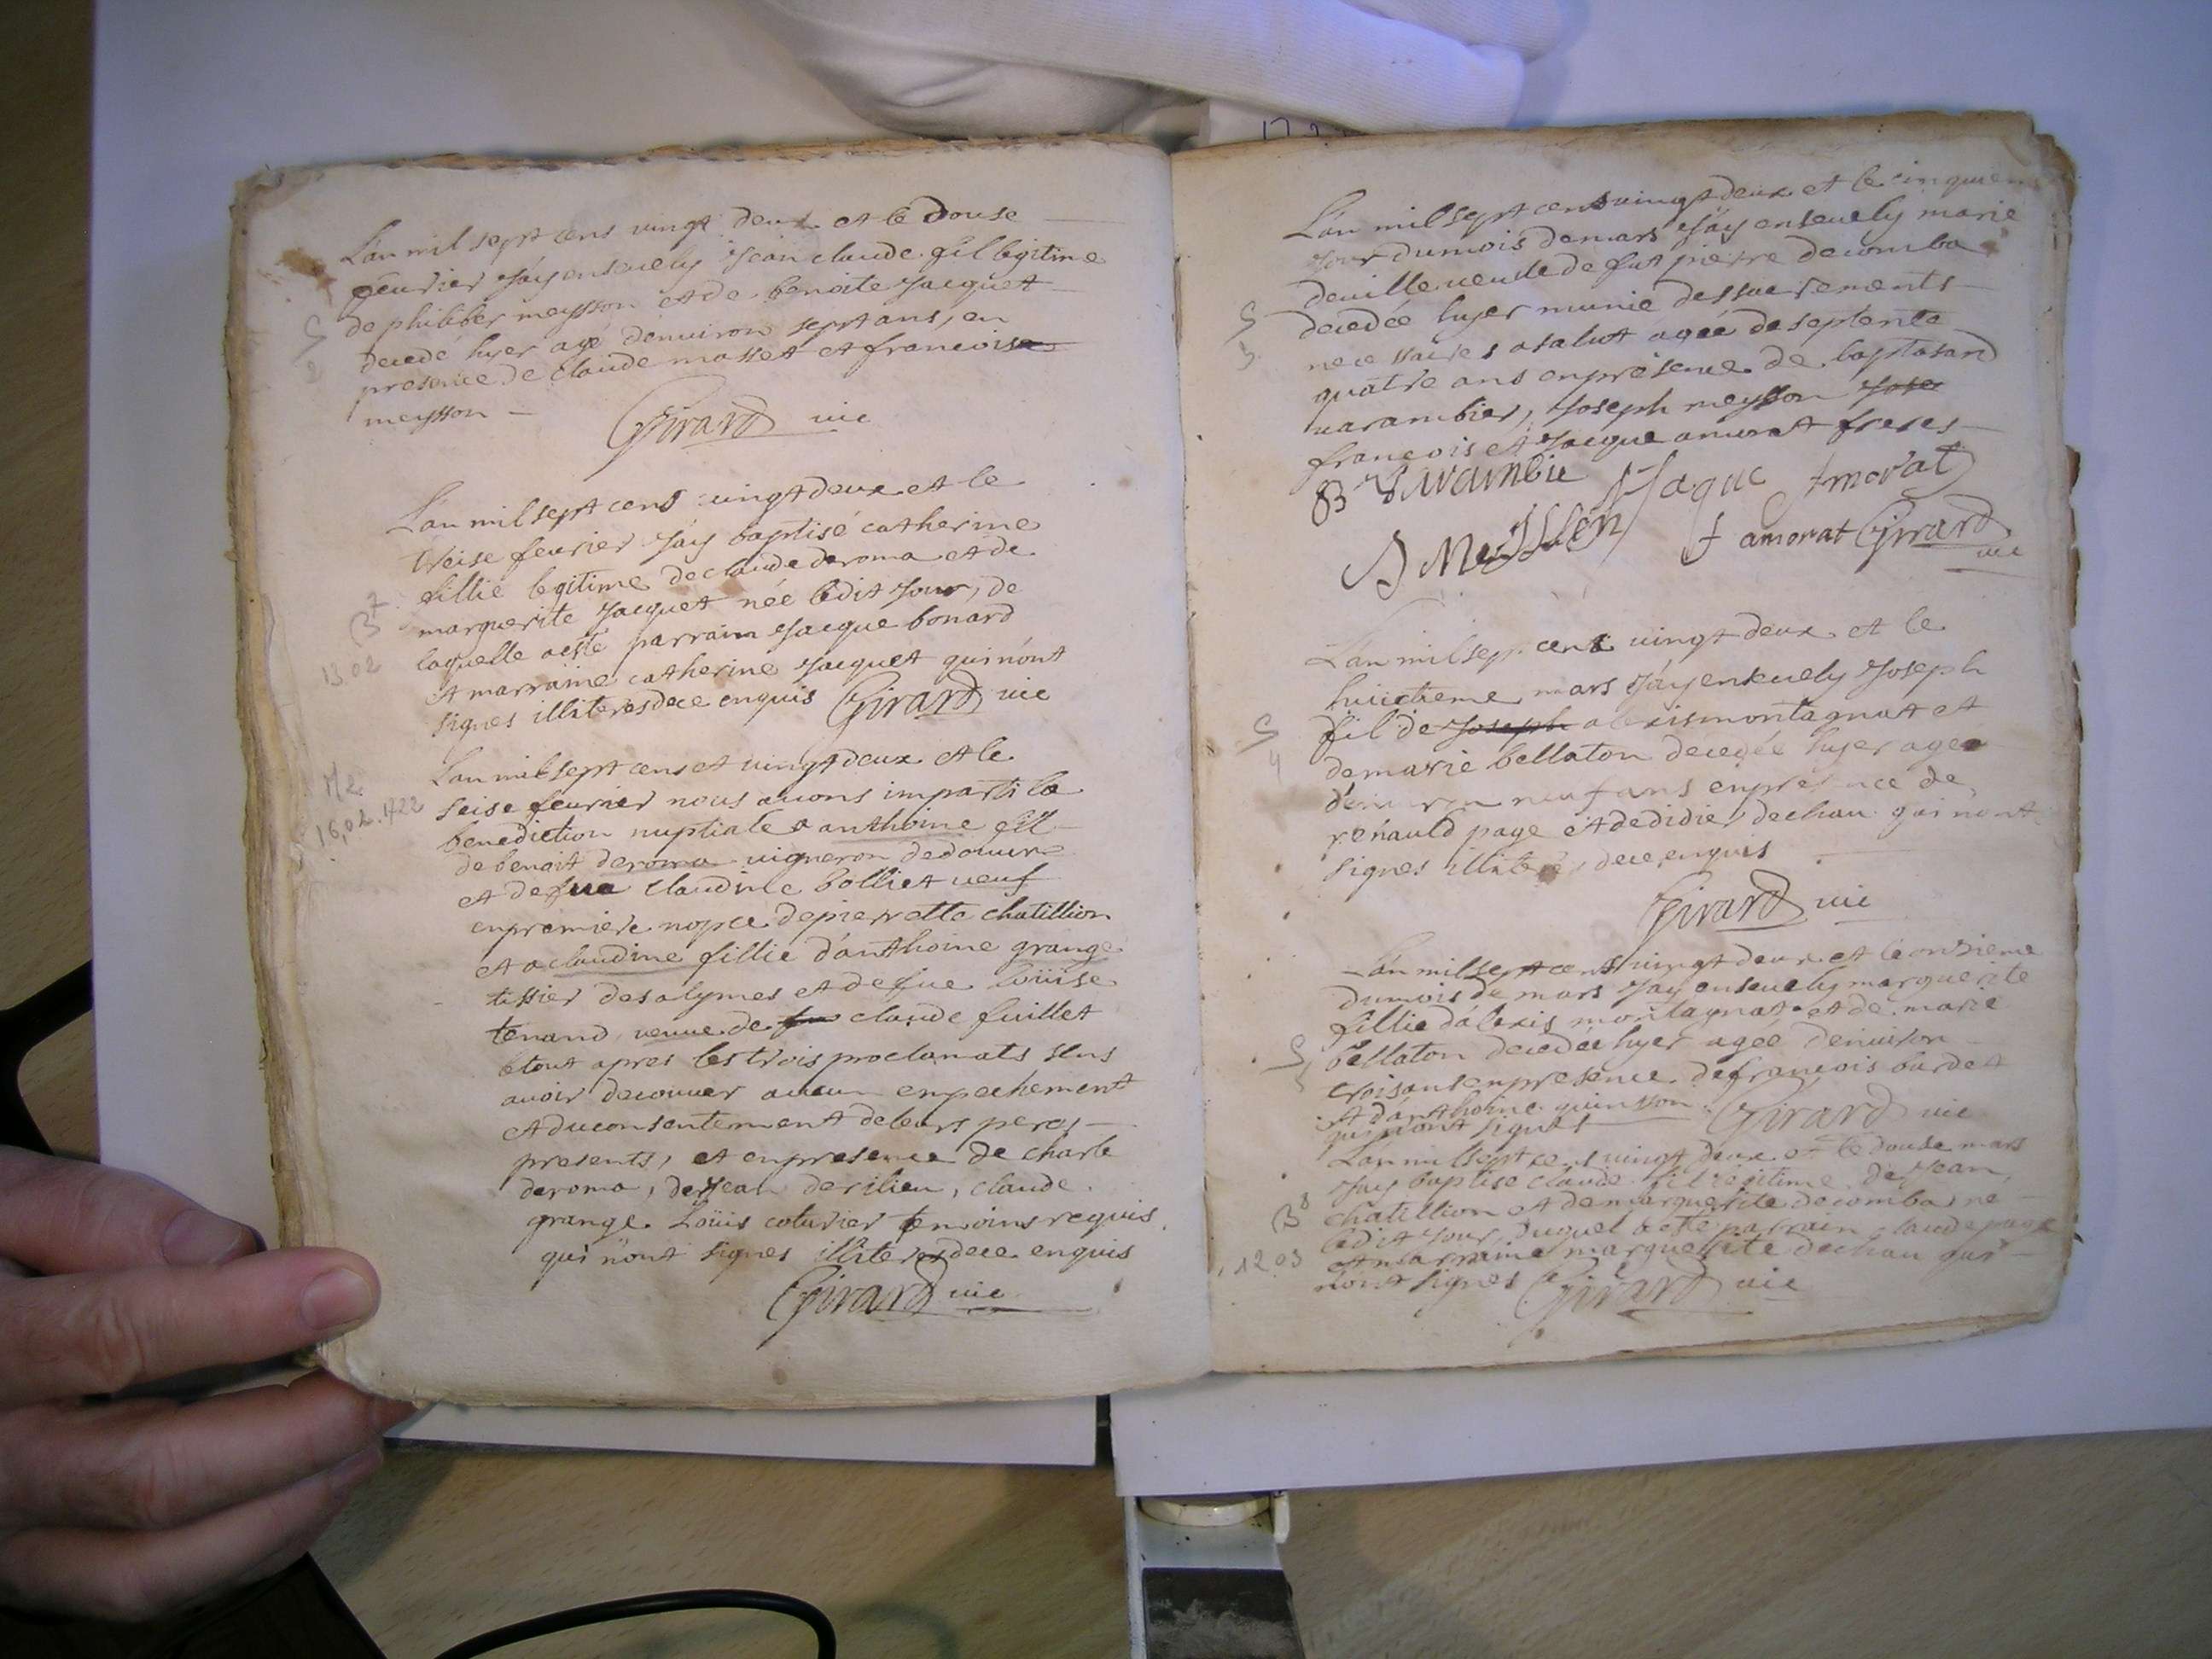 Lan mil sept cens vingt deux et le douse
feurier j'ay enseuely jean claude fil legitime
de philiber meysson et de benoite jacquet
decedé hyer agé denuiron sept ans, en
presence de claude masset et francoise
meysson
Girard vic
S
2
Lan mil sept cens vingt deux et le
treise feurier j'ay baptisé catherine
fillie legitime de claude deroma et de
marguerite jacquet née ledit jour, de
laquelle a esté parrain jacque bonard
et marraine catherine jacquet qui n'ont
signes illiteres de ce enquis Girard vic
B 7
13.02
Lan mil sept cens et vingt deux et le
seise feurier nous auons imparti la
benediction nuptiale a anthoine fil
de benoit deroma vigneron de
et de fue claudine bolliet veuf
en premiere nopce de pierrette chatillion
et a claudine fillie d'anthoine grange
tissier des alymes et de fue loüise
tenand, veuue de fue claude fuillet
le tout apres les trois proclamats sens
auoir decouuer aucun enpechement
et du consentement de leurs peres
presents, et en presence de charle
deroma, de jean derilieu, claude
grange Loüis coturier temoins requis
qui n'ont signes illiteres de ce enquis
Girard vic
M 2
16,02.1722
Lan mil sept cens vingt deux et le cinquiem
jour du mois de mars j'ay enseuely marie
deuille veuue de fut pierre decomba
decedée hyer munie des sacrements
necessaires a salut agée de septente
quatre ans en presence de baptasard
uarambier, joseph meysson jose
francois et jacque amorat freres
B Varambie Jaque Amorat
J Meysson f amorat Girard
vic
S
3
Lan mil sept cens vingt deux et le
huictieme mars j'ay enseuely joseph
fil de joseph alexis montagnat et
de marie bellaton decedée hyer agee
denuiron neuf ans en presence de
renauld page et de didier dechau qui n'ont
signes illiteres, de ce enquis
Girard vic
S
4
Lan mil sept cens vingt deux et le onsieme
du mois de mars j'ay enseuely marguerite
fillie d'alexis montagnat et de marie
bellaton decedée hyer agée denuiron
trois ans en presence de francois bardet
et d'anthoine quinsson
qui n'ont signes Girard vic
S
5
Lan mil sept cens vingt deux et le douse mars
j'ay baptise claude fil legitime de jean
chatillion et de marguerite decomba né
ledit jour duquel a esté parrain claude page
et marraine marguerite dechau qui
n'ont signes Girard vic
B 8
12 03